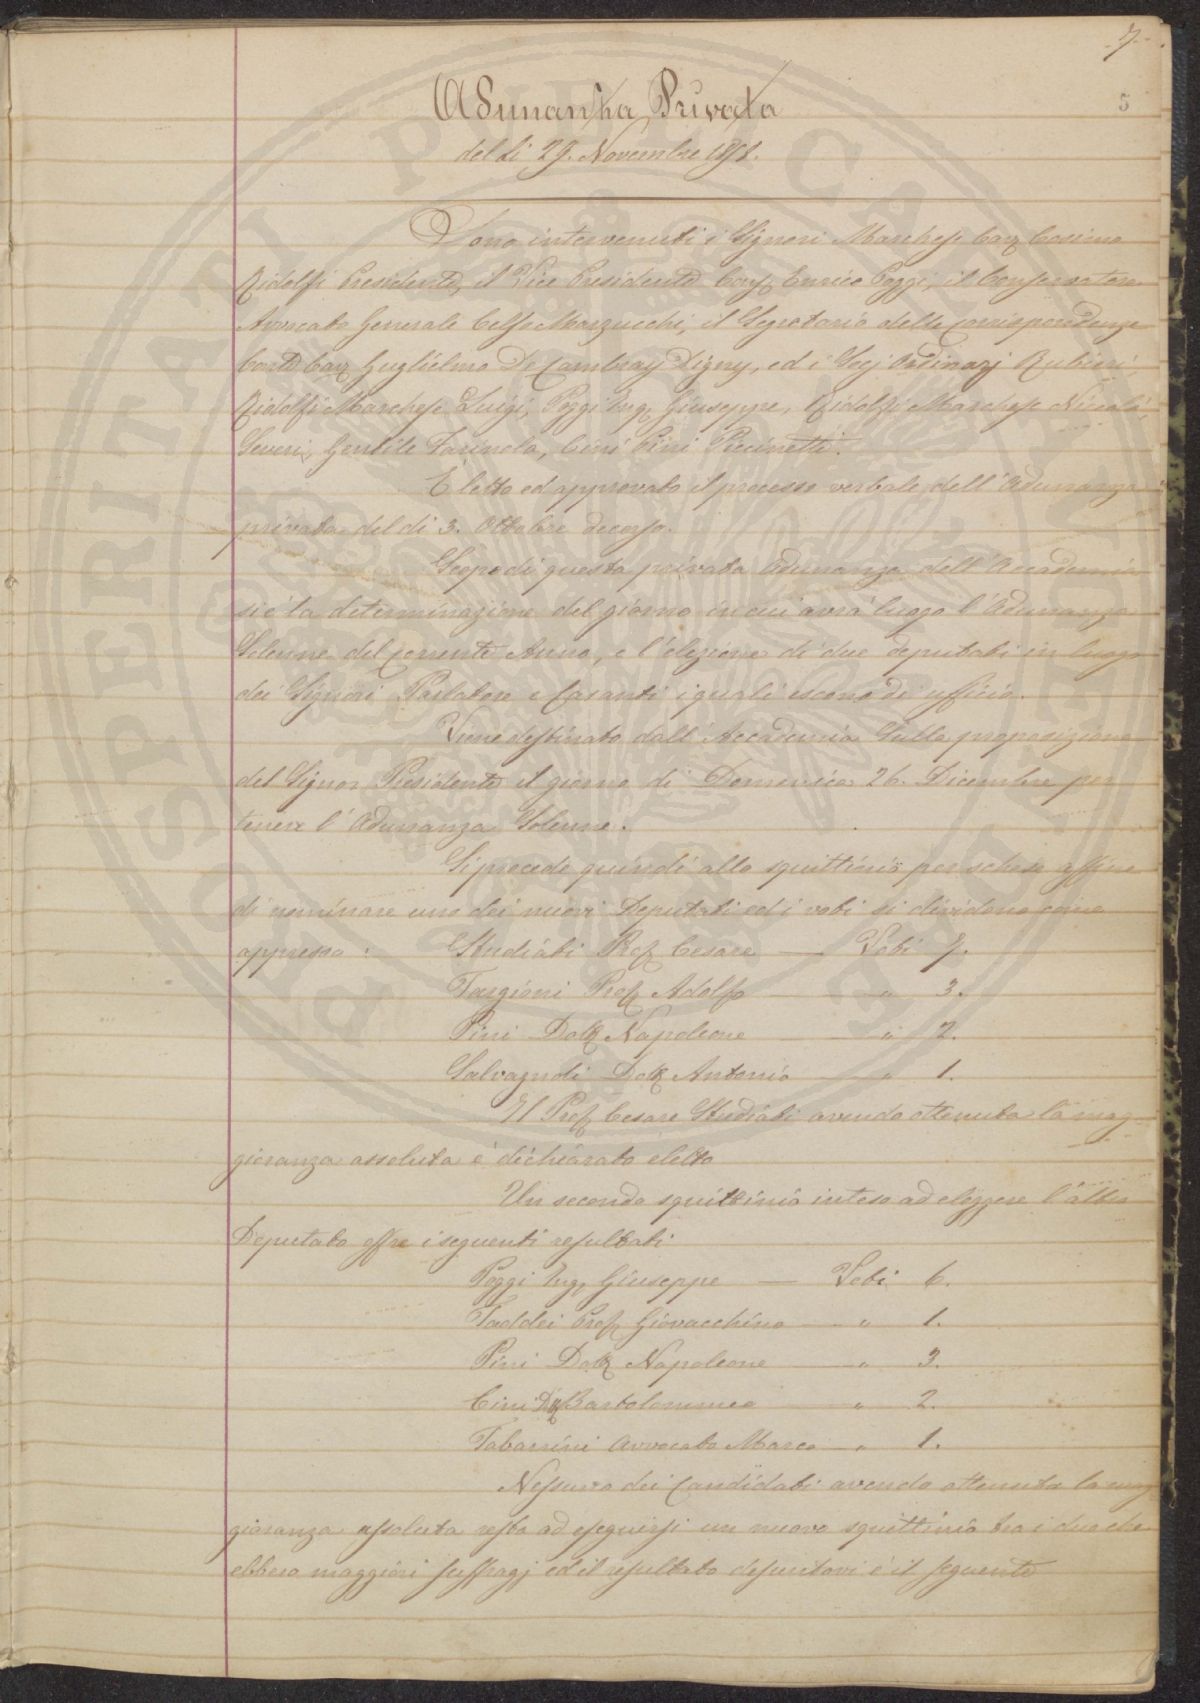 7.
5
Adunanza Privata
del dì 29. Novembre 1858.
Sono intervenuti i Signori Marchese Cav. Cosimo
Ridolfi Presidente, il Vice Presidente Cav. Enrico Poggi, il Conservatore
Avvocato Generale Celso Marzucchi, il Segretario delle Corrispondenze
Conte Cav. Guglielmo De Cambray Digny, ed i Socj Ordinarj Rubieri
Ridolfi Marchese Luigi, Poggi Ing. Giuseppe, Ridolfi Marchese Niccolò,
Severi, Gentile Farinola, Cini Pini Piccinetti.
È letto ed approvato il processo verbale dell'Adunanza
privata del dì 3. Ottobre decorso.
Scopo di questa privata Adunanza dell'Accademia
si è la determinazione del giorno in cui avrà luogo l'Adunanza
Solenne del corrente Anno, e l'elezione di due deputati in luogo
dei Signori Parlatore e Casanti i quali escono di ufficio.
Viene destinato dall'Accademia sulla proposizione
del Signor Presidente il giorno di Domenica 26. Dicembre per
tenere l'Adunanza Solenne.
Si procede quindi allo squittinio per schede affine
di nominare uno dei nuovi Deputati ed i voti si dividono come
appresso: Studiati Prof. Cesare — Voti 7.
Targioni Prof. Adolfo " 3.
Pini Dott. Napoleone " 2.
Salvagnoli Dott. Antonio " 1.
Il Prof. Cesare Studiati avendo ottenuta la mag
gioranza assoluta è dichiarato eletto
Un secondo squittinio inteso ad eleggere l'altro
Deputato offre i seguenti resultati
Poggi Ing. Giuseppe — Voti 6.
Taddei Prof. Giovacchino — " 1.
Pini Dott. Napoleone — " 3.
Cini Bartolommeo " 2.
Tabarrini Avvocato Marco — " 1.
Nessuno dei Candidati avendo ottenuta la mag
gioranza assoluta resta ad eseguirsi un nuovo squittinio tra i due che
ebbero maggiori suffragj ed il resultato è il seguente